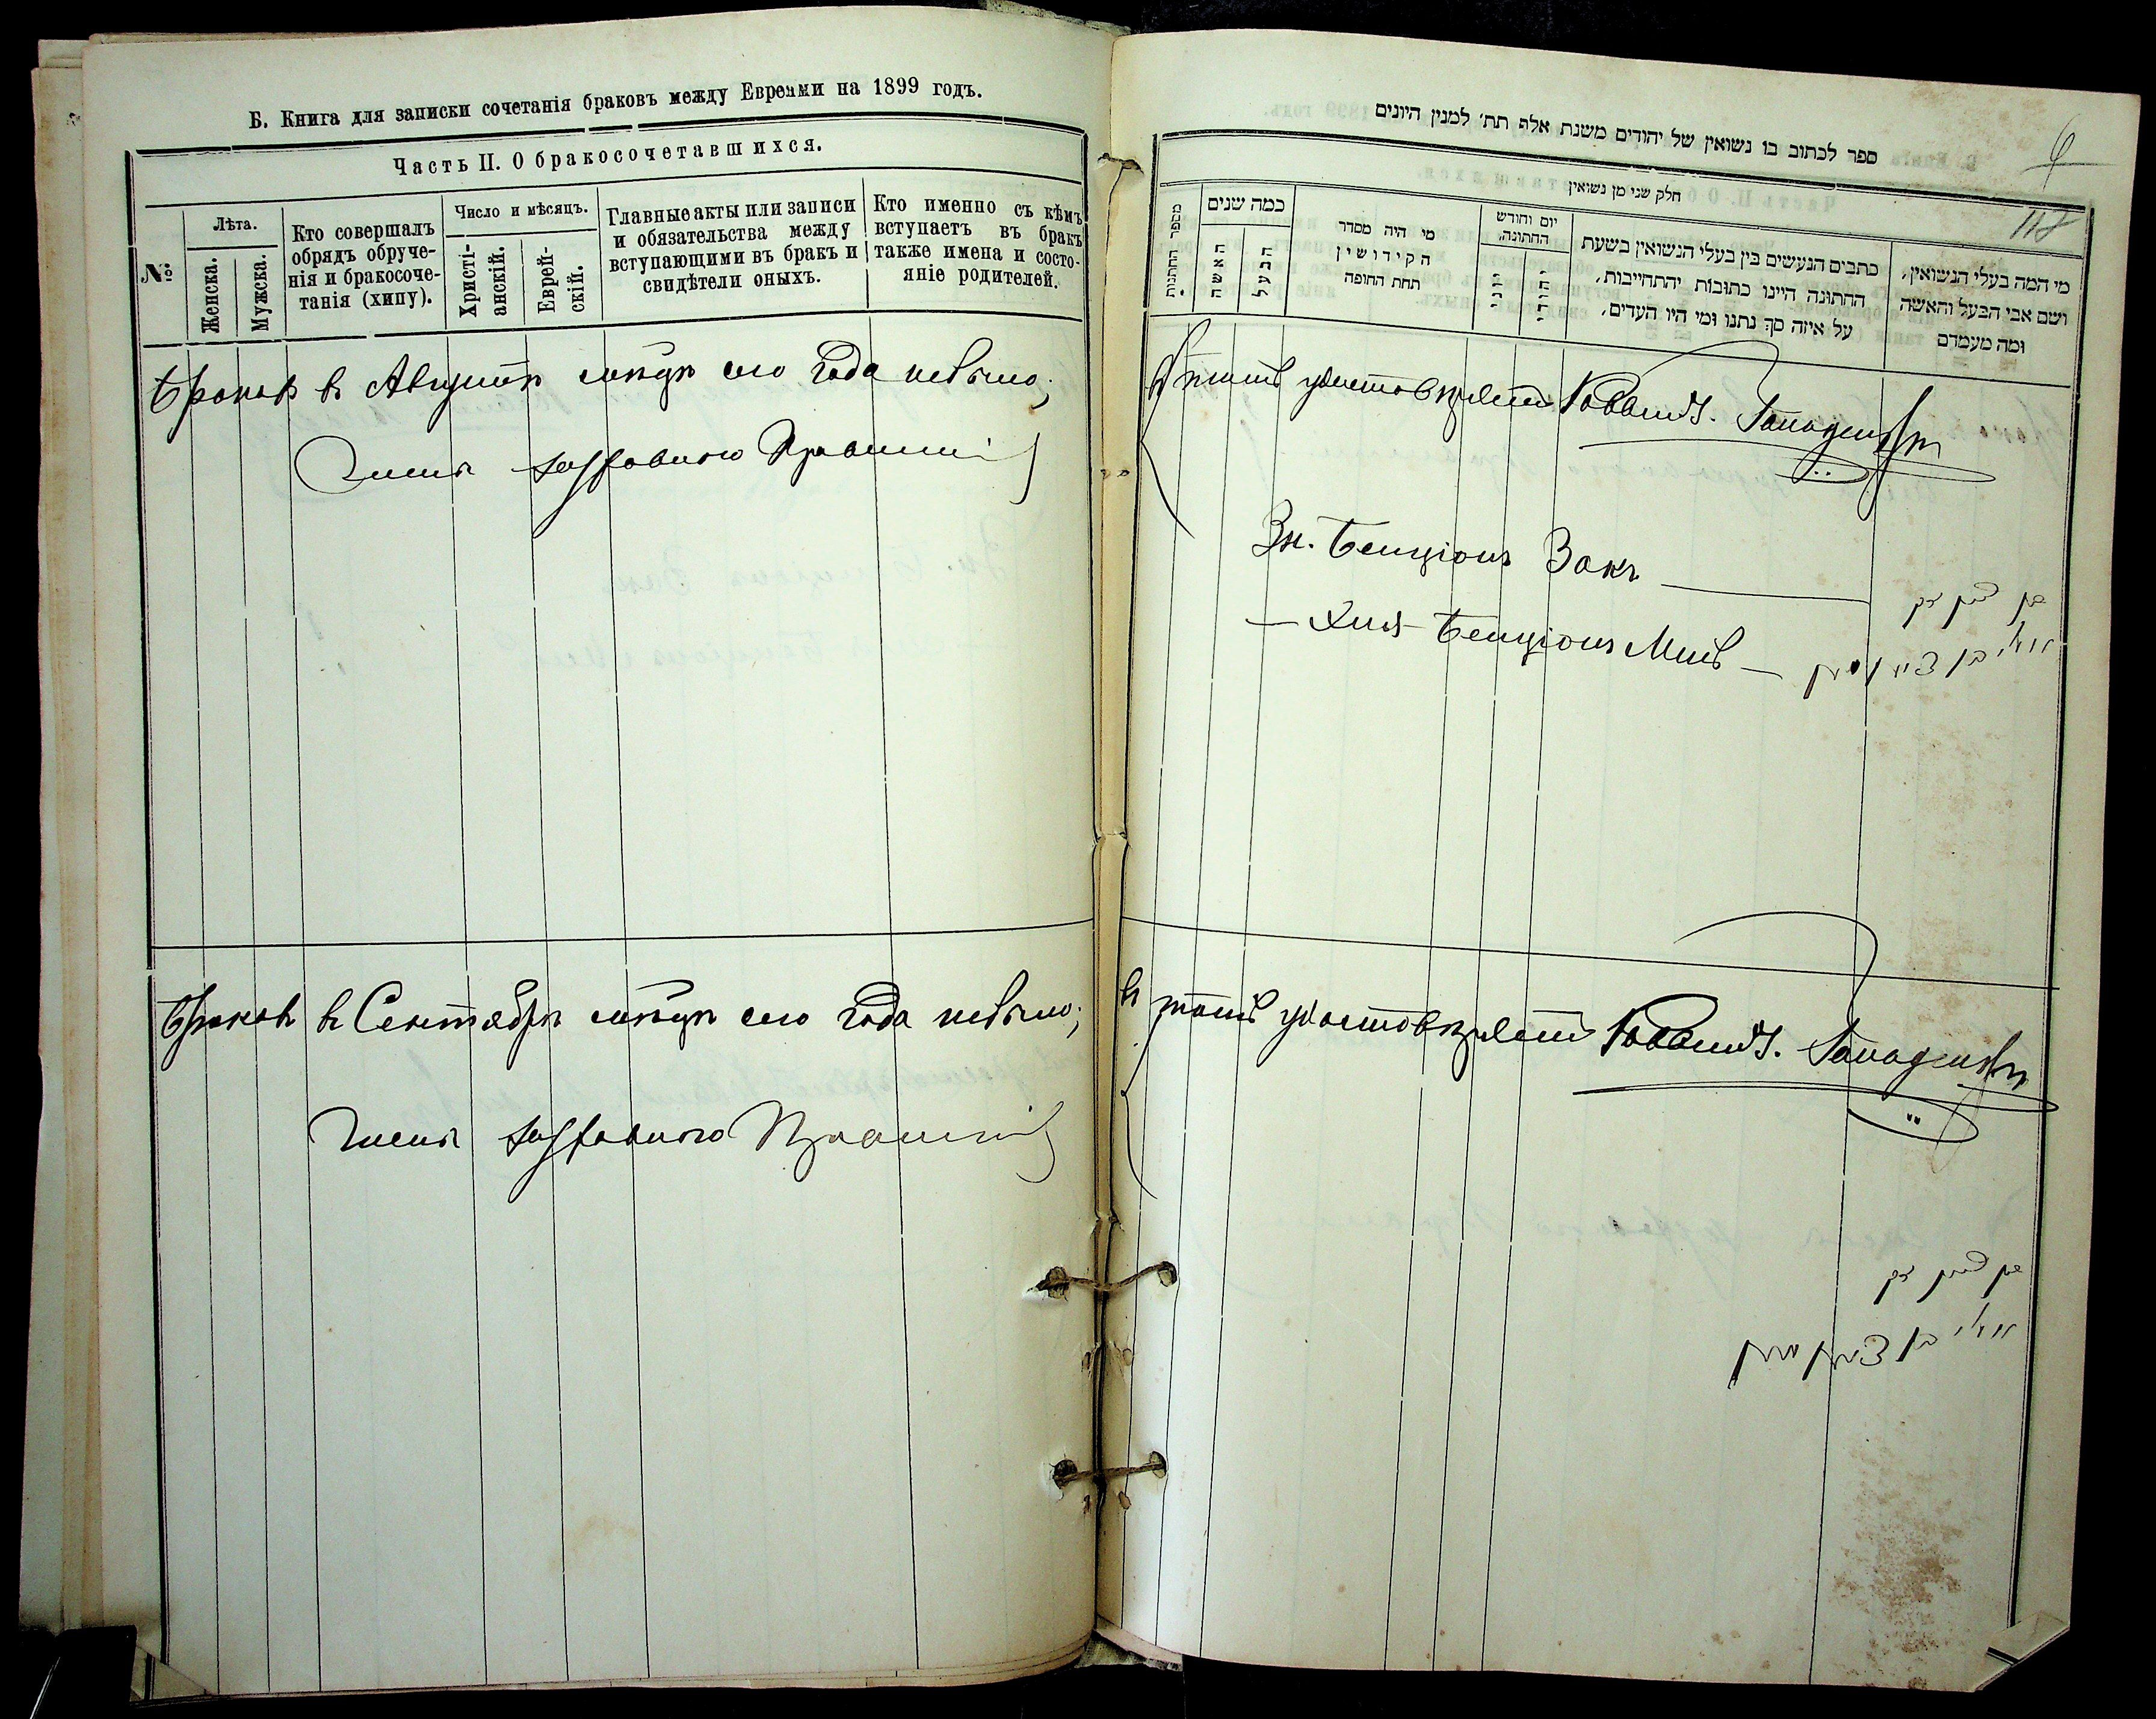 Б. Книга для записки сочетанія браковъ между Евреями на 1899 годъ.
Часть II. О бракосочетавшихся.
№
Лѣта.
Женска.
Мужска.
Кто совершалъ
обрядъ обруче-
нія и бракосоче-
танія (хипу).
Число и мѣсяцъ.
Христі-
анскій.
Еврей-
скій.
Главные акты или записи
и обязательства между
вступающими въ бракъ и
свидѣтели оныхъ.
Кто именно съ кѣмъ
вступаетъ въ бракъ
также имена и состо-
яніе родителей.
Браковъ въ Августѣ мѣсяцѣ сего года небыло;
Члены духовного Правленія
Браковъ въ Сентябрѣ мѣсяцѣ сего года небыло;
Члены духовного Правленія
ספר לכתוב בו נשואין של יהודים משנת אלף תת׳ למנין היונים
6
118
חלק שני מן נשואין
מספר החתונות
כמה שנים
האשה
הבעל
מי היה מסדר
הקידושין
תחת החופה
יום וחודש
החתונה.
כתבים הנעשים בין בעלי הנשואין בשעת
החתונה היינו כתובות והתחייבות,
על איזה סך נתנו ומי היו העדים,
מי המה בעלי הנשואין,
ושם אבי הבעל והאשה
ומה מעמדם
въ томъ удостовѣряетъ Раввинъ.
Зн. Бенціонъ Закъ
— Хия-Бенціонъ —
בן ציון
въ томъ удостовѣряетъ Раввинъ.
בן ציון